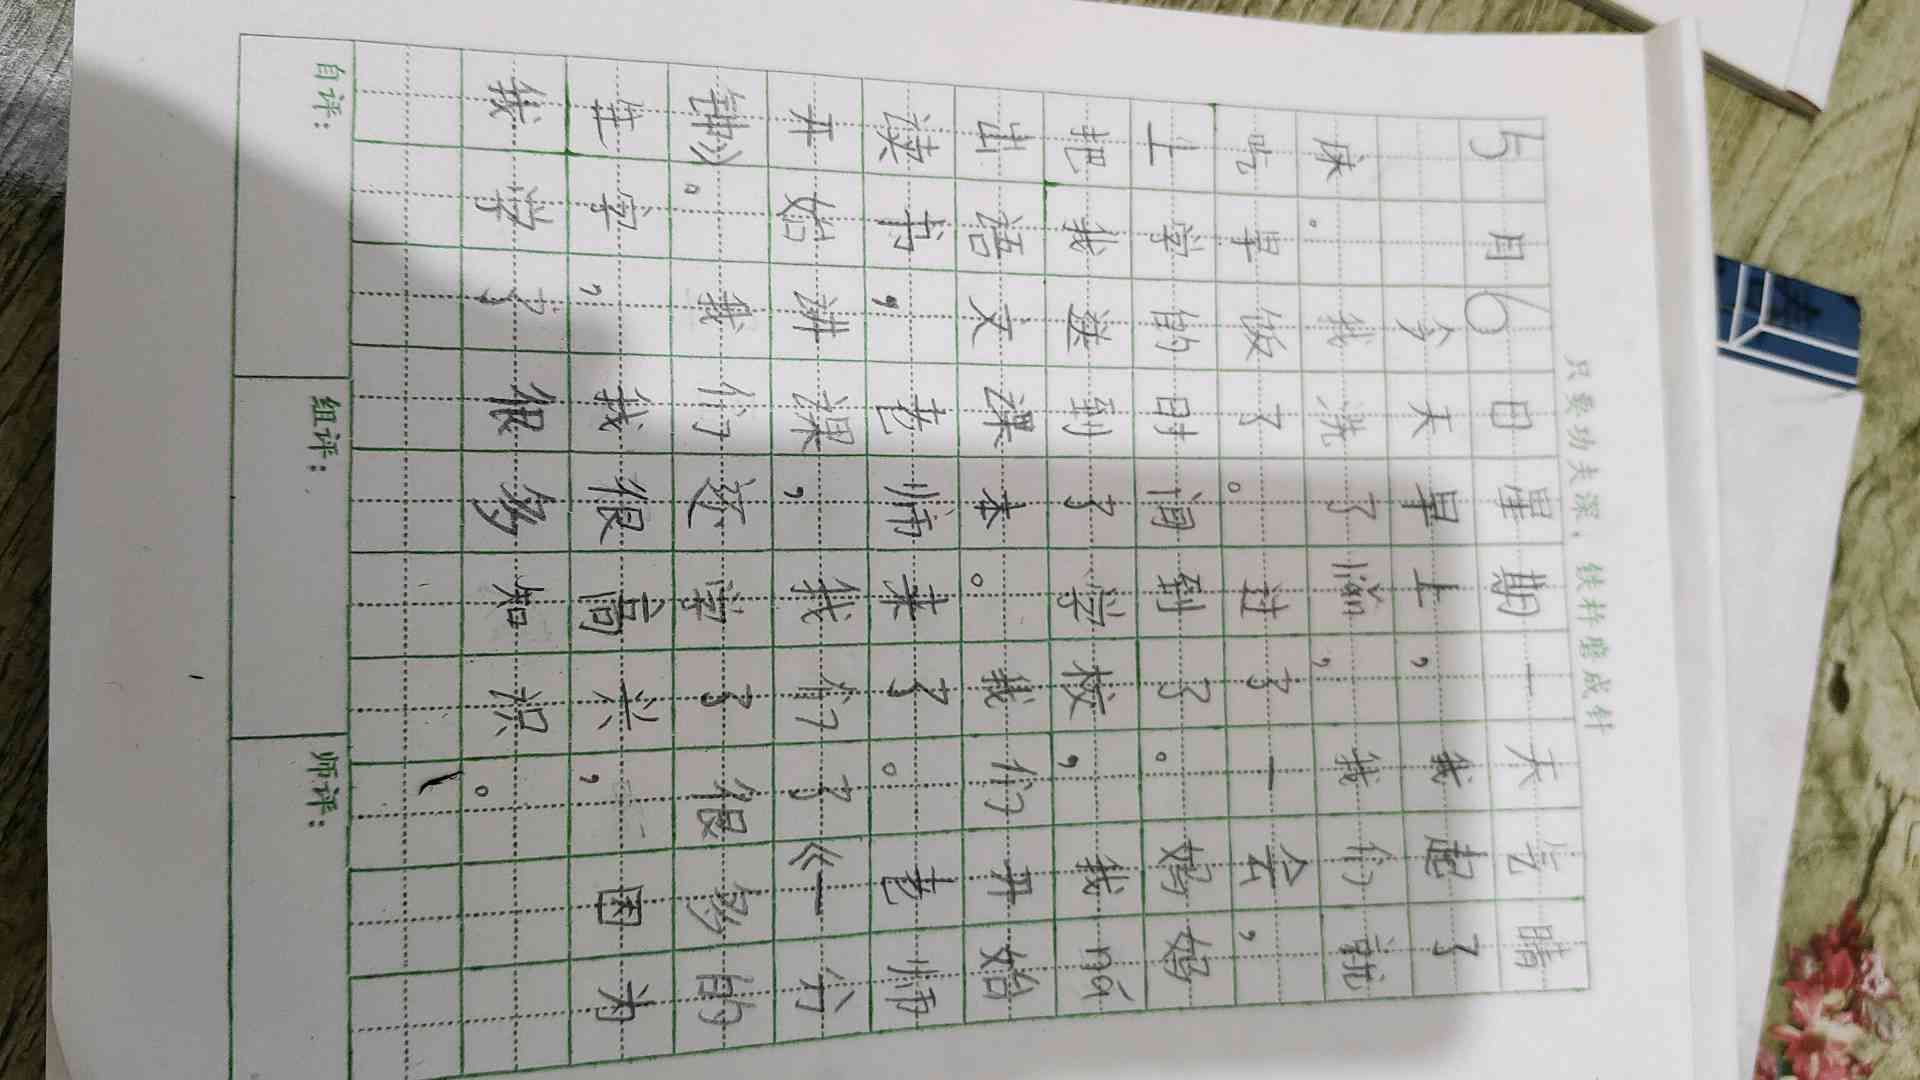 只要功夫深，铁杵磨成针
5月6日星期一天气晴
今天早上，我起了
床。我洗了脸，我们就
吃早饭了。过了一会，
上学的时间到了。妈妈
把我送到了学校，我ná
出语文课本。我们开始
读书，老师来了。老师
开始讲课，我们了《一分
钟》。我们还写了很多的
生字，我很高兴，因为
我学了很多知识。
自评： 组评： 师评：